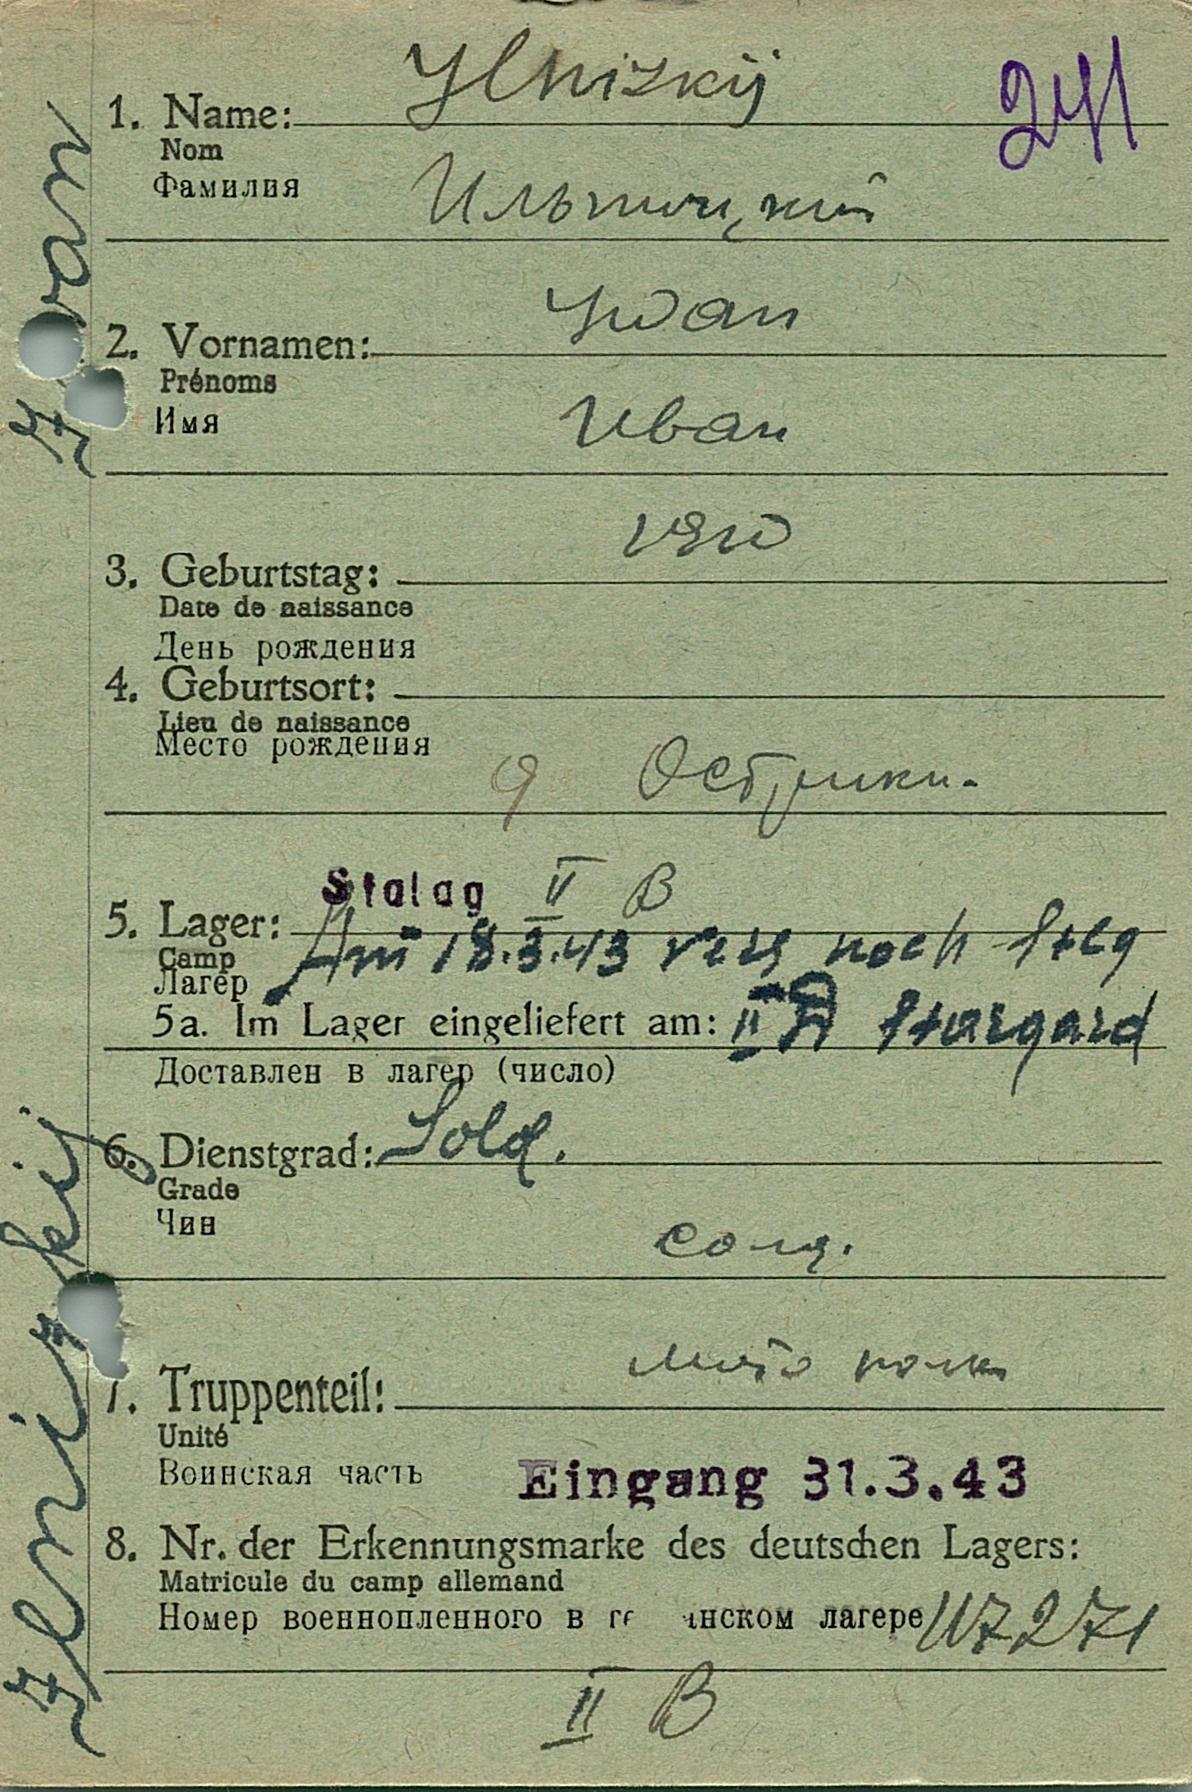 Ylnizkij
1. Name:
Nom
241
Фамилия
Ильницкий
Ywan
2. Vornamen:
Prénoms
Имя
Иван
3. Geburtstag:
Date de naissance
День рождения
4. Geburtsort:
Lieu de naissance
Место рождения
Острики.
Stalag II B
5. Lager:
Camp
Лагер
Am 18.3.43 vers. noch Stlg
5a. Im Lager eingeliefert am: II D Stargard
Доставлен в лагер (число)
6. Dienstgrad: Sold.
Grade
Чин
солд.
полк
7. Truppenteil:
Unité
Воинская часть
Eingang 31.3.43
8. Nr. der Erkennungsmarke des deutschen Lagers:
Matricule du camp allemand
Номер военнопленного в ге анском лагере 117271
II B
Ilnizkij Iwan